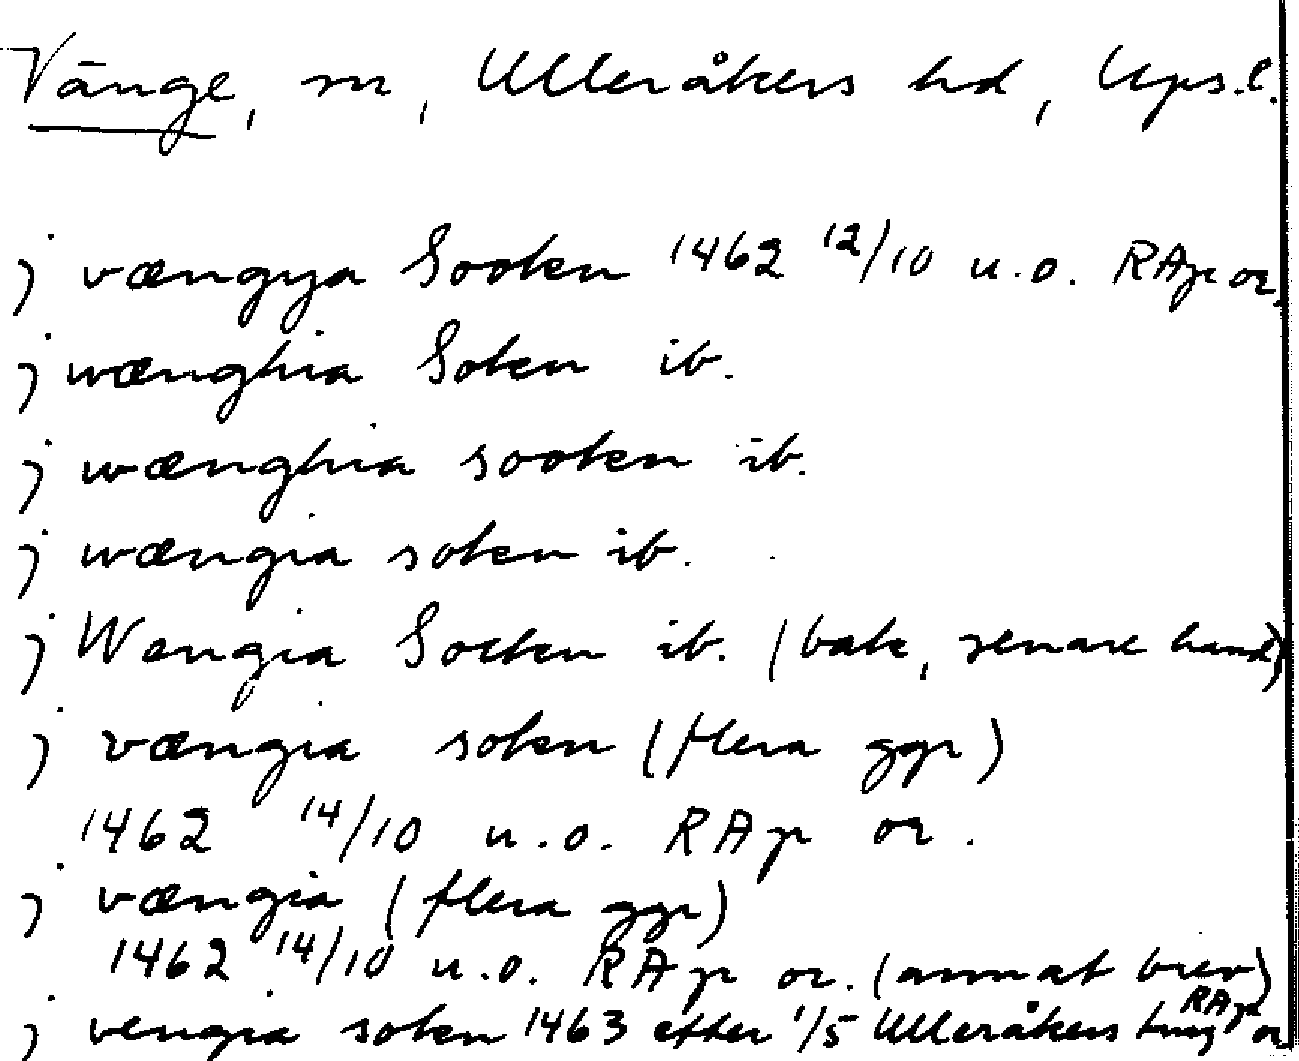 Vänge, sn, Ulleråkers hd, Upsl.
j vængya Sooken 1462 12/10 u.o. RAp or.
j wænghia Soken ib.
j wænghia sooken ib.
j wængia soken ib.
j Wengia Socken ib. (bak, senare hand)
j vængia soken (flera ggr)
1462 14/10 u.o. RAp or.
j vængia (flera ggr)
1462 14/10 u.o. RAp or. (annat brev)
j vengia soken 1463 efter 1/5 Ulleråkers ting RAp or